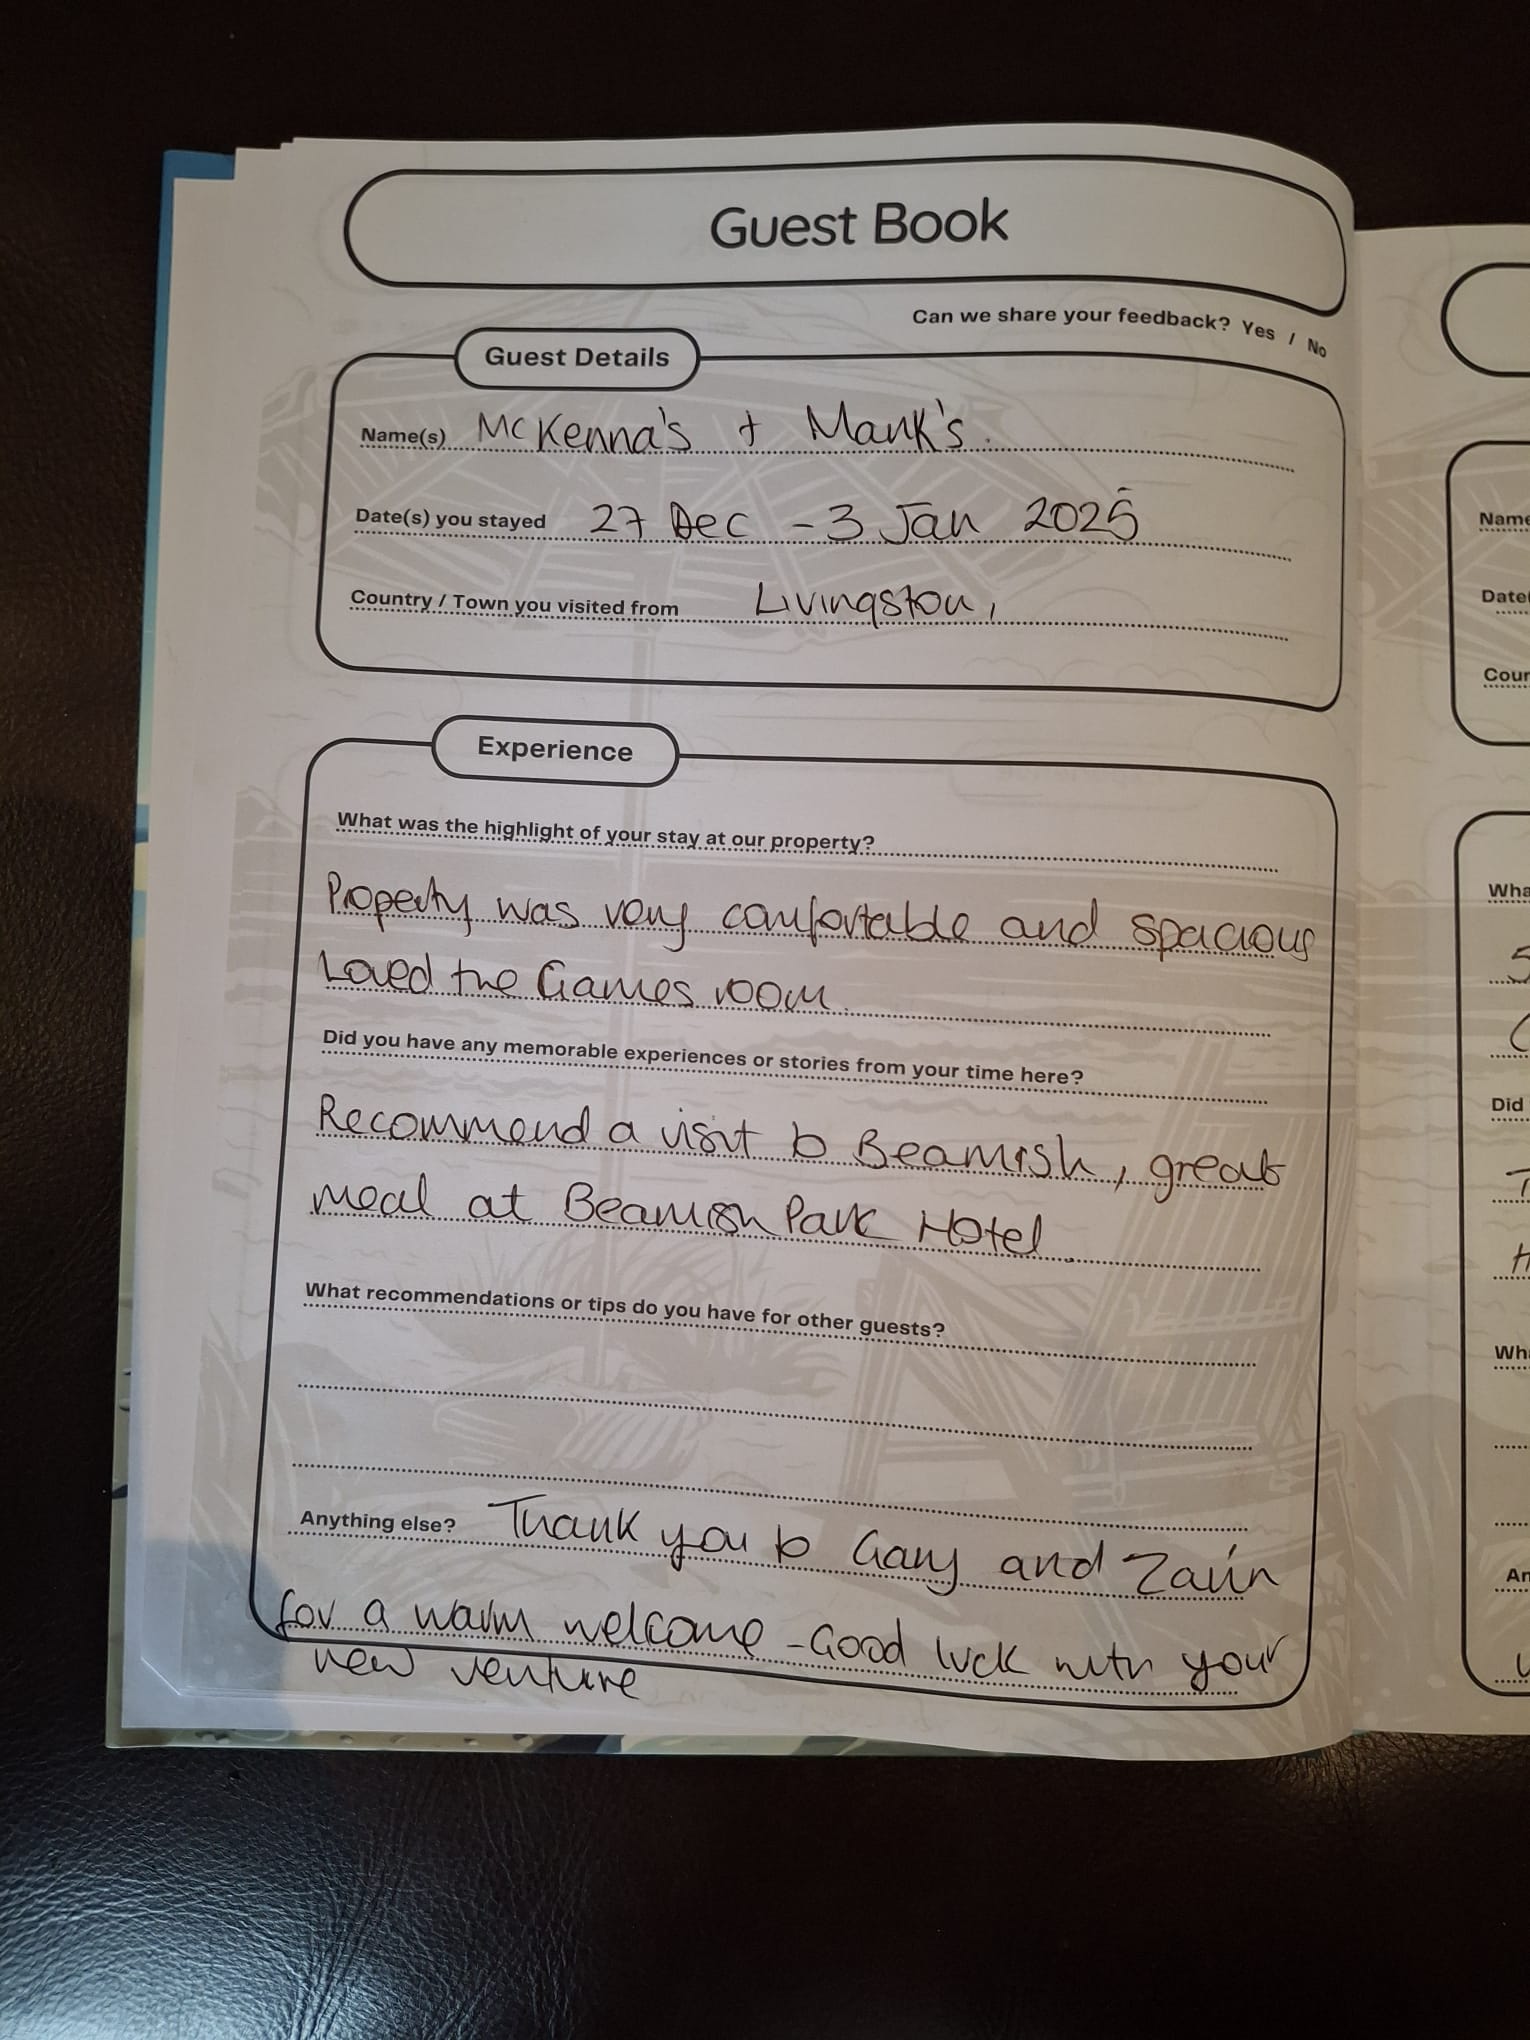 Guest Book
Can we share your feedback? Yes / No
Guest Details
Name(s) McKenna's + Mank's.
Date(s) you stayed 27 Dec - 3 Jan 2025
Country / Town you visited from Livingston,
Experience
What was the highlight of your stay at our property?
Property was very comfortable and spacious
Loved the Games room.
Did you have any memorable experiences or stories from your time here?
Recommend a visit to Beamish, great
meal at Beamish Park Hotel.
What recommendations or tips do you have for other guests?
Anything else? Thank you to Gary and
for a warm welcome - Good luck with your
new venture
Name
Date
Cour
Wha
Did
Wha
An